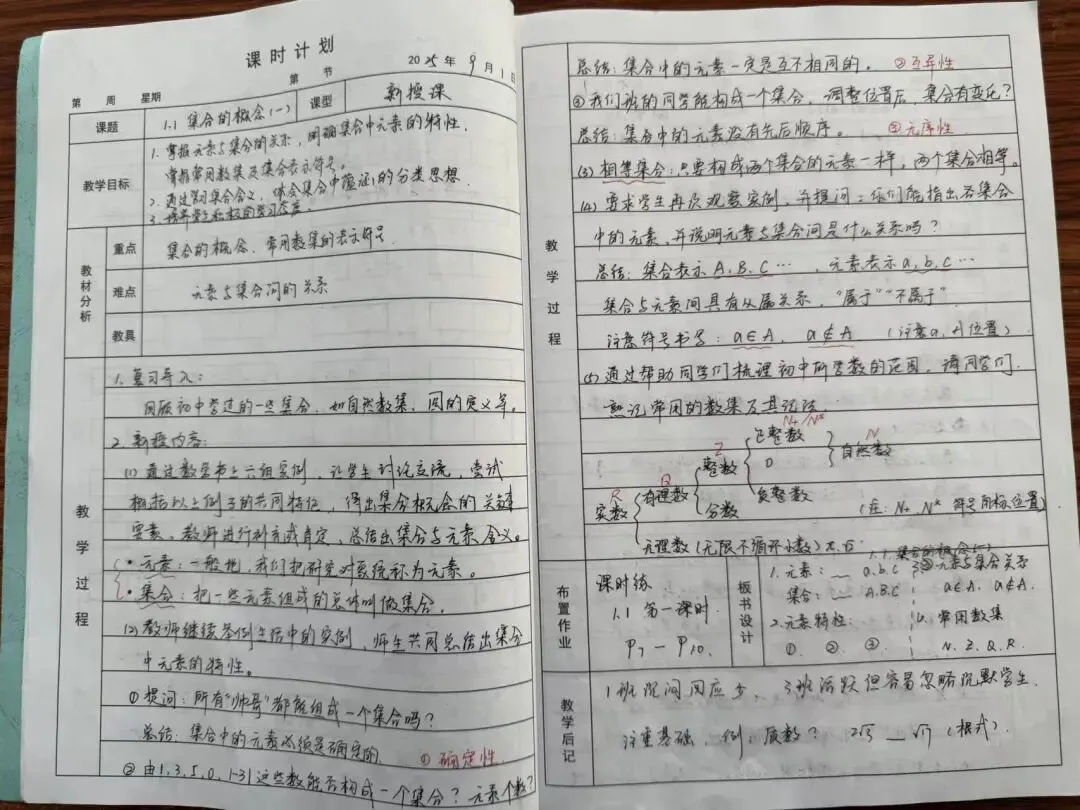 课时计划
2025年9月1日
第 周 星期 第 节
课题 1.1 集合的概念(一) 课型 新授课
教学目标
1. 掌握元素与集合的关系,明确集合中元素的特性.
掌握常用数集及集合表示符号.
2. 通过学习集合含义,体会集合中蕴证的分类思想.
3. 培养学生积极的学习态度.
教材分析
重点 集合的概念、常用数集的表示符号
难点 元素与集合间的关系
教具
教学过程
1. 复习导入:
回顾初中学过的一些集合,如自然数集,圆的定义等。
2. 新授内容:
(1) 通过数学书上六组实例,让学生讨论交流,尝试
概括以上例子的共同特征,得出集合概念的关键
要素,教师进行补充或肯定,总结出集合与元素含义。
• 元素:一般地,我们把研究对象统称为元素。
• 集合:把一些元素组成的总体叫做集合.
(2) 教师继续举例生活中的实例,师生共同总结出集合
中元素的特性。
① 提问:所有"帅哥"都能组成一个集合吗?
总结:集合中的元素必须是确定的. ①确定性.
② 由1,3,5,0,|-3|这些数能否构成一个集合?元素个数?
总结:集合中的元素一定是互不相同的。 ②互异性
③ 我们班的同学能构成一个集合,调整位置后,集合有变化?
总结:集合中的元素没有先后顺序。 ③无序性
(3) 相等集合:只要构成两个集合的元素一样,两个集合相等。
(4) 要求学生再次观察实例,并提问:你们能指出各集合
中的元素,并说明元素与集合间是什么关系吗?
教学过程
总结:集合表示A,B,C…,元素表示a,b,c…
集合与元素间具有从属关系,"属于""不属于"
注意符号书写:a∈A,a∉A (注意a,A位置)
(5) 通过帮助同学们梳理初中所学数的范围,请同学们
熟记常用的数集及其记法
N+/N*
Z 正整数 N
Q 整数 0 自然数
R 有理数 负整数
实数 分数 (注:N+ N* 符号角标位置)
无理数(无限不循环小数)π.√2
布置作业
课时练
1.1 第一课时
P7—P10.
板书设计
1.1 集合的概念(一)
1.元素:__ a.b.c 3.元素与集合关系
集合:__ A.B.C a∈A, a∉A.
2.元素特性: 4. 常用数集
①. ②. ③. N. Z. Q. R.
教学后记
1班沉闷回应少,3班活跃但容易忽略沉默学生.
注重基础,例:质数? 2√3 — √7 (根式).